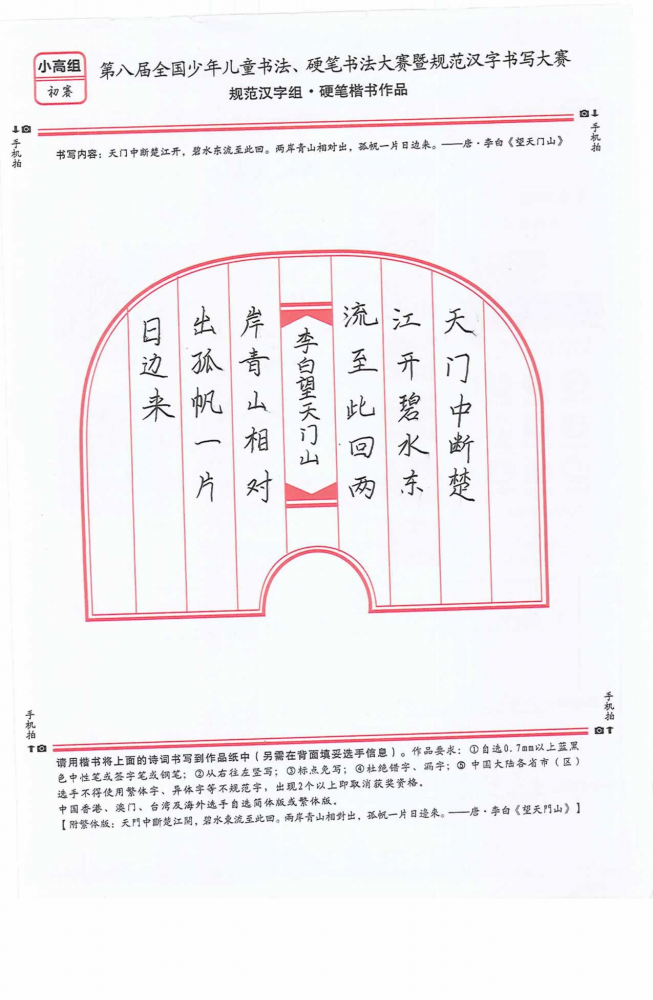 小高组
初赛
第八届全国少年儿童书法、硬笔书法大赛暨规范汉字书写大赛
规范汉字组·硬笔楷书作品
手机拍
手机拍
书写内容：天门中断楚江开，碧水东流至此回。两岸青山相对出，孤帆一片日边来。——唐·李白《望天门山》
天门中断楚
江开碧水东
流至此回两
李白望天门山
岸青山相对
出孤帆一片
日边来
手机拍
手机拍
请用楷书将上面的诗词书写到作品纸中（另需在背面填妥选手信息）。作品要求：①自选0.7mm以上蓝黑
色中性笔或签字笔或钢笔；②从右往左竖写；③标点免写；④杜绝错字、漏字；⑤中国大陆各省市（区）
选手不得使用繁体字、异体字等不规范字，出现2个以上即取消获奖资格。
中国香港、澳门、台湾及海外选手自选简体版或繁体版。
【附繁体版：天門中斷楚江開，碧水東流至此回。兩岸青山相對出，孤帆一片日邊來。——唐·李白《望天門山》】